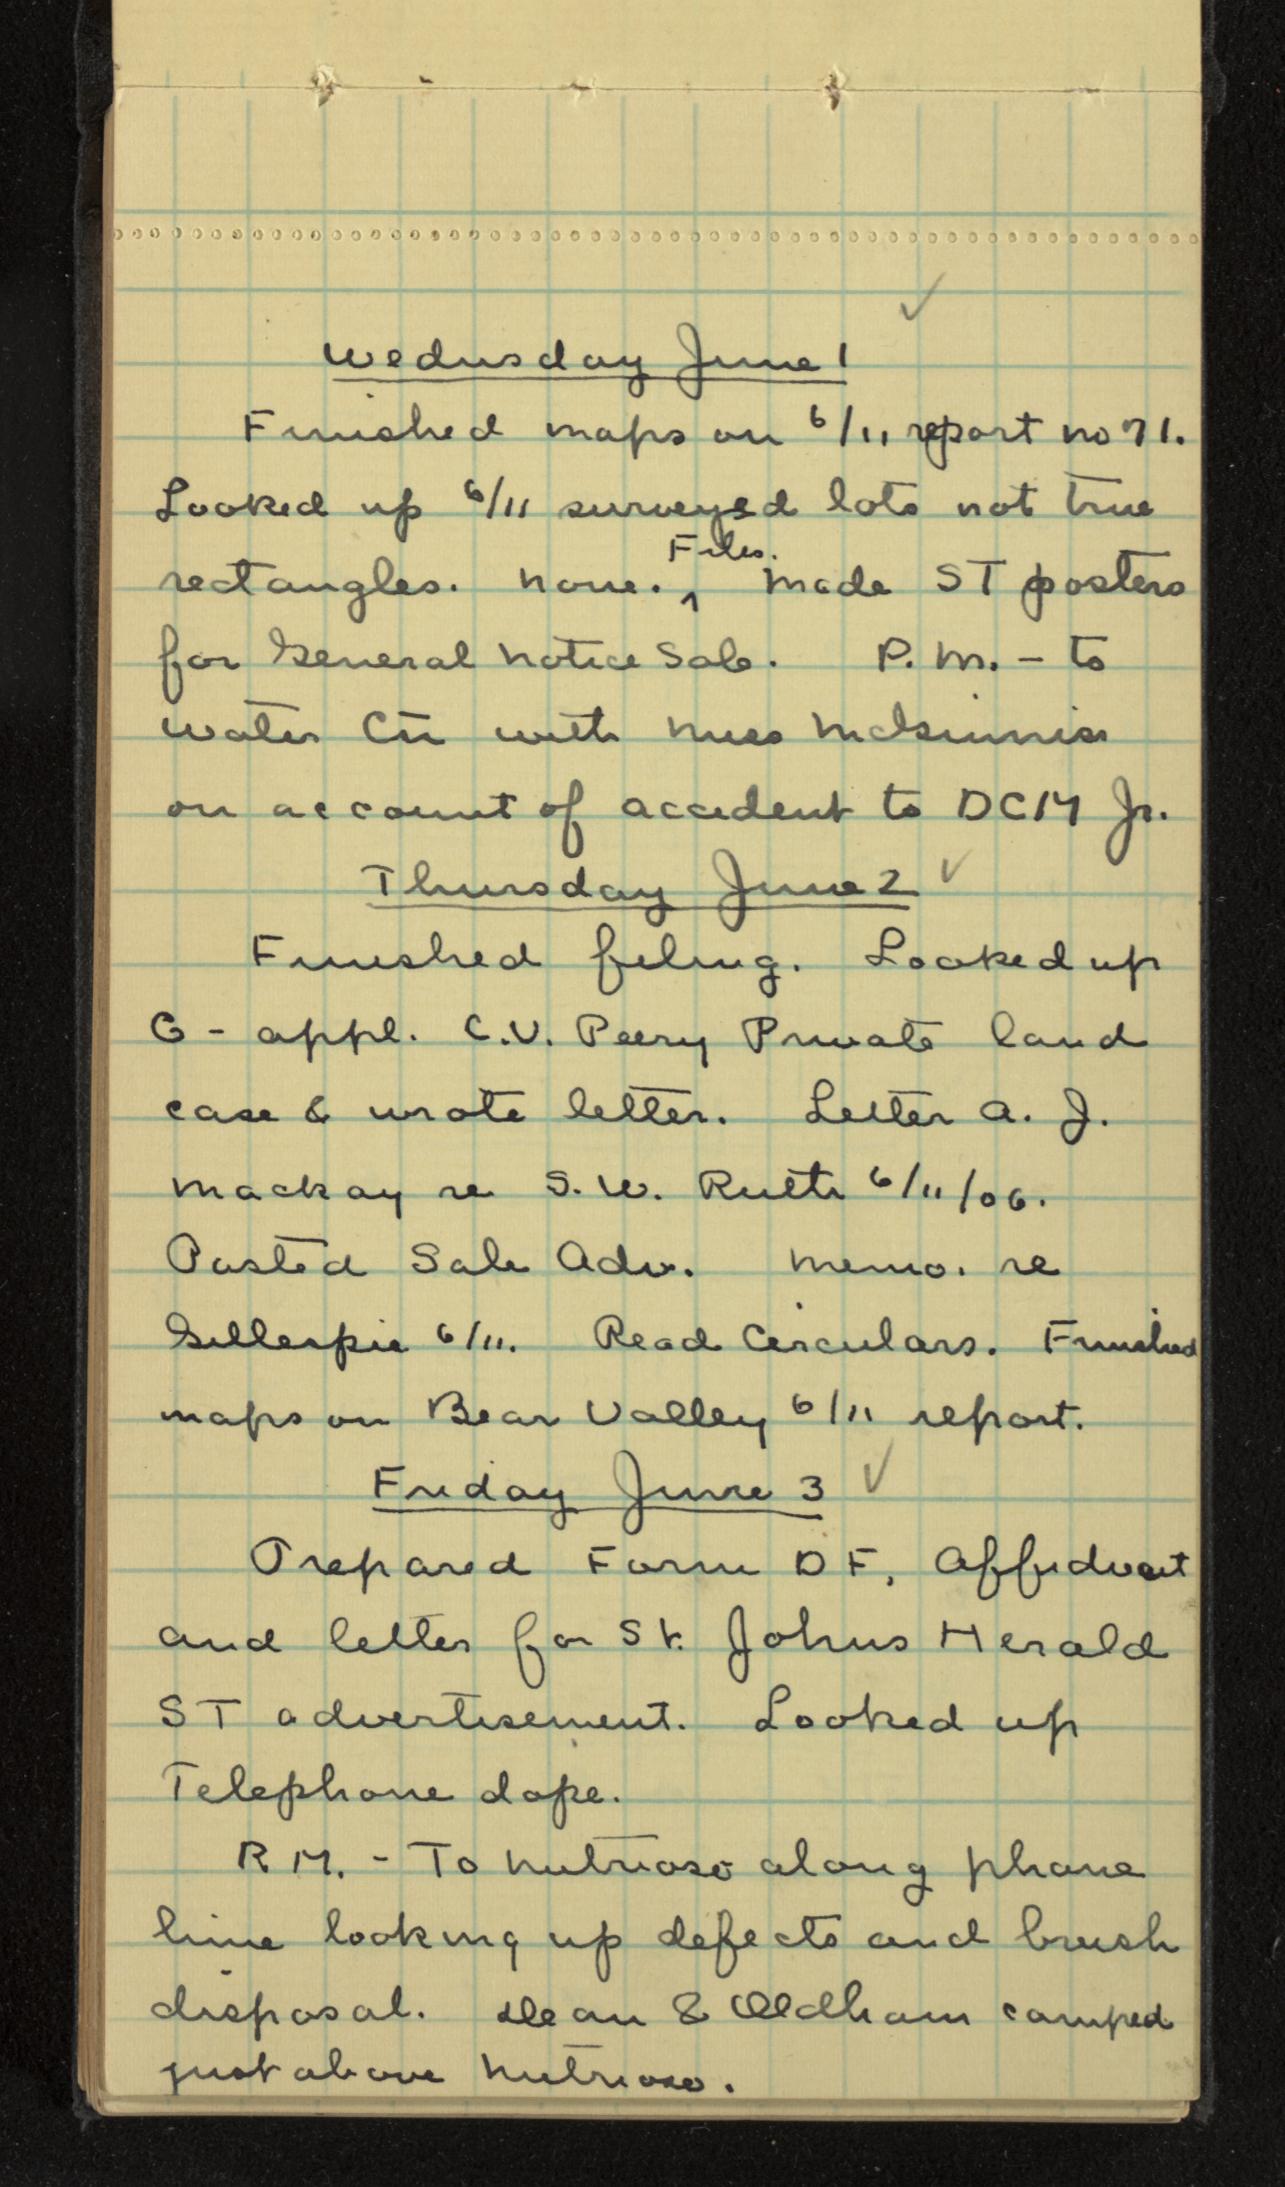 Wednsday June 1
Finished maps on 6/11 report no 71.
Looked up 6/11 surveyed lots not true
Files.
rectangles. None. ^ Made ST posters
for General Notice Sale. P.M. - to
Water Cn with Miss McGinnis
on account of accident to DCM Jr.
Thursday June 2
Finished filing. Looked up
G - appl. C.V. Peery Private land
case & wrote letter. Letter A. J.
Mackay re S.W. Ruth 6/11/06.
Posted Sale Adv. Memo. re
Gillespie 6/11. Read Circulars. Finished
maps on Bear Valley 6/11 report.
Friday June 3
Prepared Form DF, Affidavit
and letter for St. Johns Herald
ST advertisement. Looked up
Telephone dope.
P.M. - To Nutrioso along phone
line looking up defects and brush
disposal. Dean & Oldham camped
just above Nutrioso.